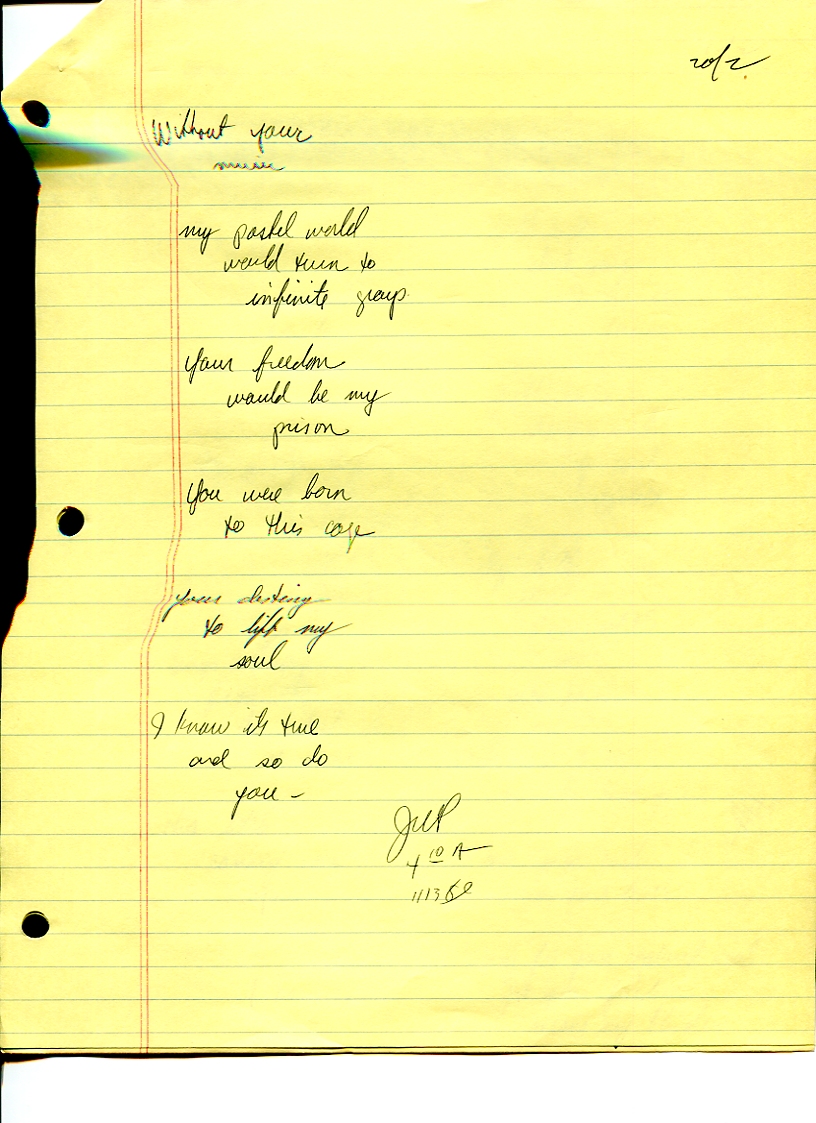 2 of 2
Without your
music
my pastel world
would turn to
infinite grays.
Your freedom
would be my
prison
You were born
to this cage
your destiny
to lift my
soul
I know it's true
and so do
you –
4 10 A